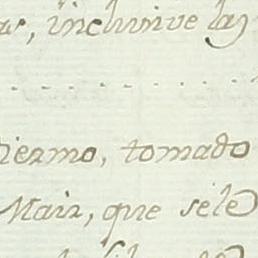 , inclusive las
iermo, tomado
Mair, que sele